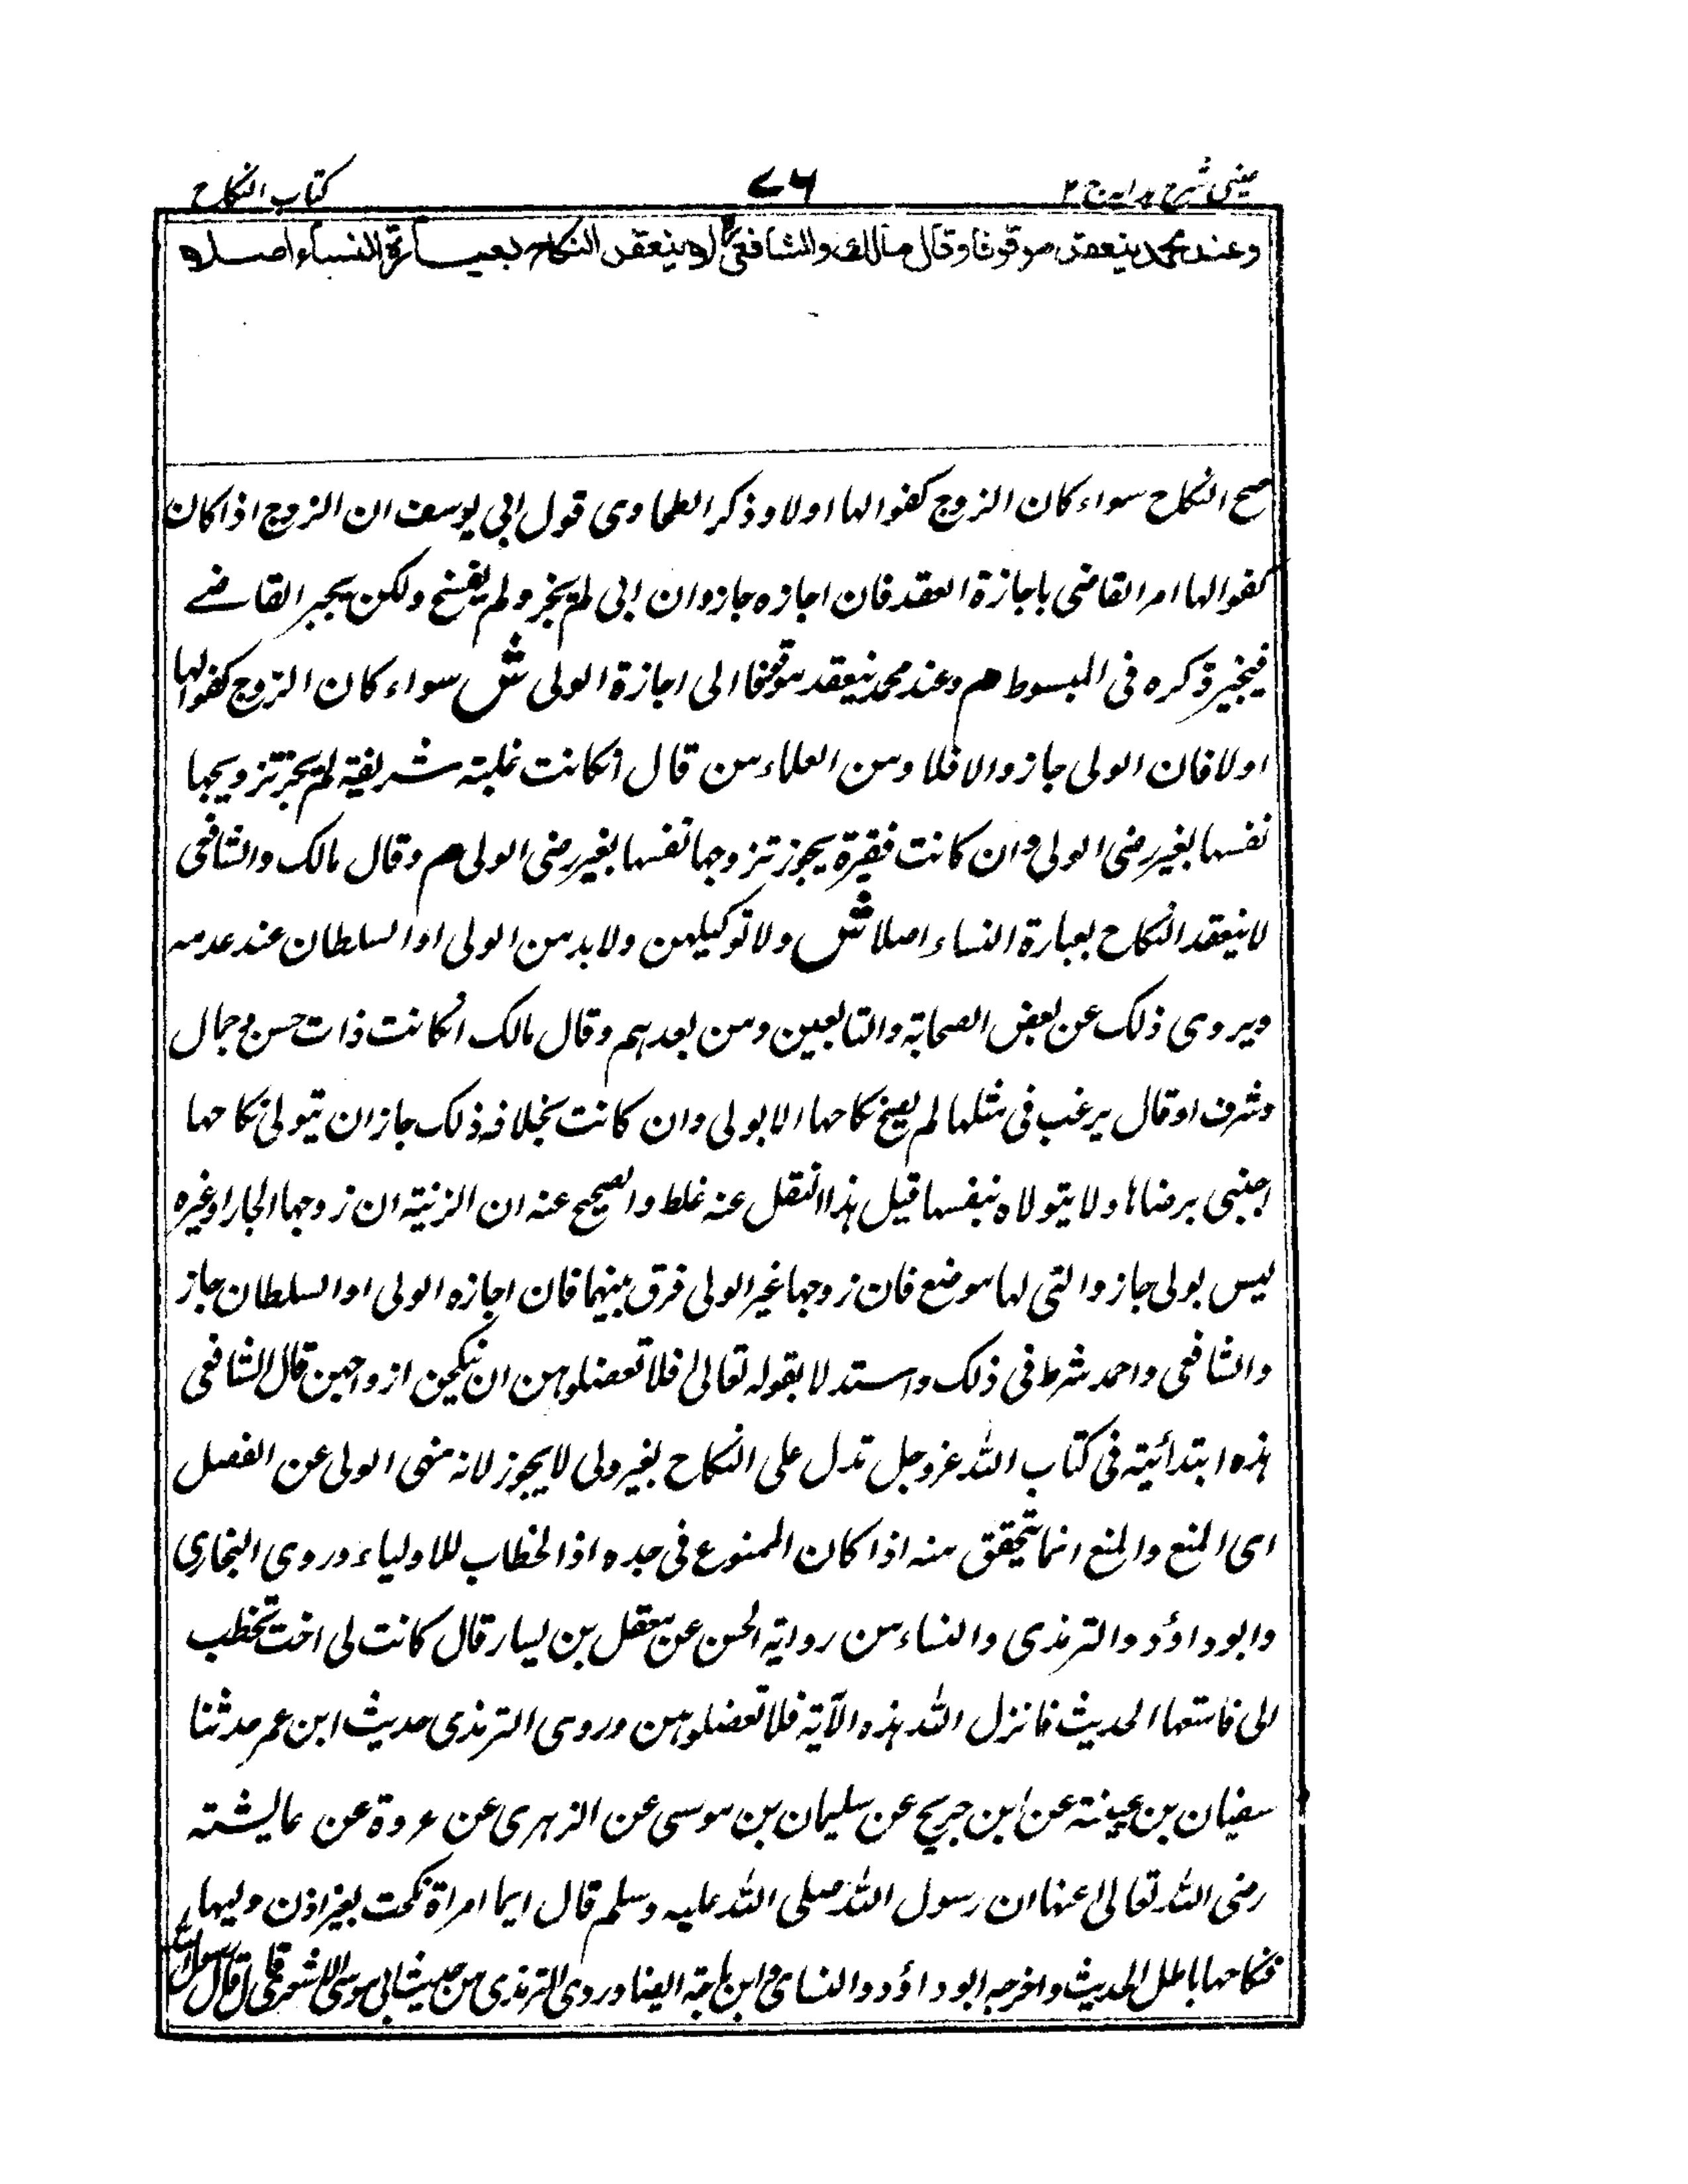 عینی شرح ہدایہ ج ۲ ۷۶ کتاب النکاح
وعند محمد ینعقد موقوفا وقال مالك والشافعی لا ینعقد النکاح بعبارة النساء اصلا
صح النکاح سواء کان الزوج کفوا لہا او لا وذکر الطحاوی قول ابی یوسف ان الزوج اذا کان
کفوا لہا امر القاضی باجازة العقد فان اجازہ جاز وان ابی لم یجز ولم یفسخ ولکن یجبر القاضے
فیجیز ذکرہ فی المبسوط م وعند محمد ینعقد موقوفا الی اجازة الولی ش سواء کان الزوج کفوا لہا
او لا فان الولی جاز والا فلا ومن العلماء من قال انکانت غلبتہ شریفة لم یجز تزویجہا
نفسہا بغیر رضی الولی وان کانت فقیرة یجوز تزوجہا نفسہا بغیر رضی الولی م وقال مالک والشافعی
لا ینعقد النکاح بعبارة النساء اصلا ش ولا توکیلہن ولا بد من الولی او السلطان عند عدمہ
ویروی ذلک عن بعض الصحابة والتابعین ومن بعدہم وقال مالک انکانت ذات حسن وجمال
وشرف او قال یرغب فی مثلہا لم یصح نکاحہا الا بولی وان کانت بخلافہ ذلک جاز ان یتولی نکاحہا
اجنبی برضاہا ولا یتولاہ بنفسہا قیل ہذا النقل عنہ غلط والصحیح عنہ ان الزنیة ان زوجہا الجار او غیرہ
لیس بولی جاز والتی لہا موضع فان زوجہا غیر الولی فرق بینہما فان اجازہ الولی او السلطان جاز
والشافعی واحمد شرط فی ذلک واستدلا بقولہ تعالیٰ فلا تعضلوہن ان ینکحن ازواجہن قال الشافعی
ہذہ ابتدائیة فی کتاب اللہ عزوجل تدل علی النکاح بغیر ولی لا یجوز لانہ منہی الولی عن الفصل
ای المنع والمنع انما یتحقق منہ اذا کان الممنوع فی جدہ اذ الخطاب للاولیاء وروی البخاری
وابو داؤد والترمذی والنساء من روایة الحسن عن معقل بن یسار قال کانت لی اخت تخطب
الی فامنعہا الحدیث فانزل اللہ ہذہ الآیة فلا تعضلوہن وروی الترمذی حدیث ابن عمر حدثنا
سفیان بن عیینة عن ابن جریج عن سلیمان بن موسی عن الزہری عن عروة عن عایشتہ
رضی اللہ تعالیٰ عنہا ان رسول اللہ صلی اللہ علیہ وسلم قال ایما امراة نکحت بغیر اذن ولیہا
فنکاحہا باطل الحدیث واخرجہ ابو داؤد والنسائی وابن ماجة ایضا وروی الترمذی من حدیث ابی موسی الاشعری قال قال رسول